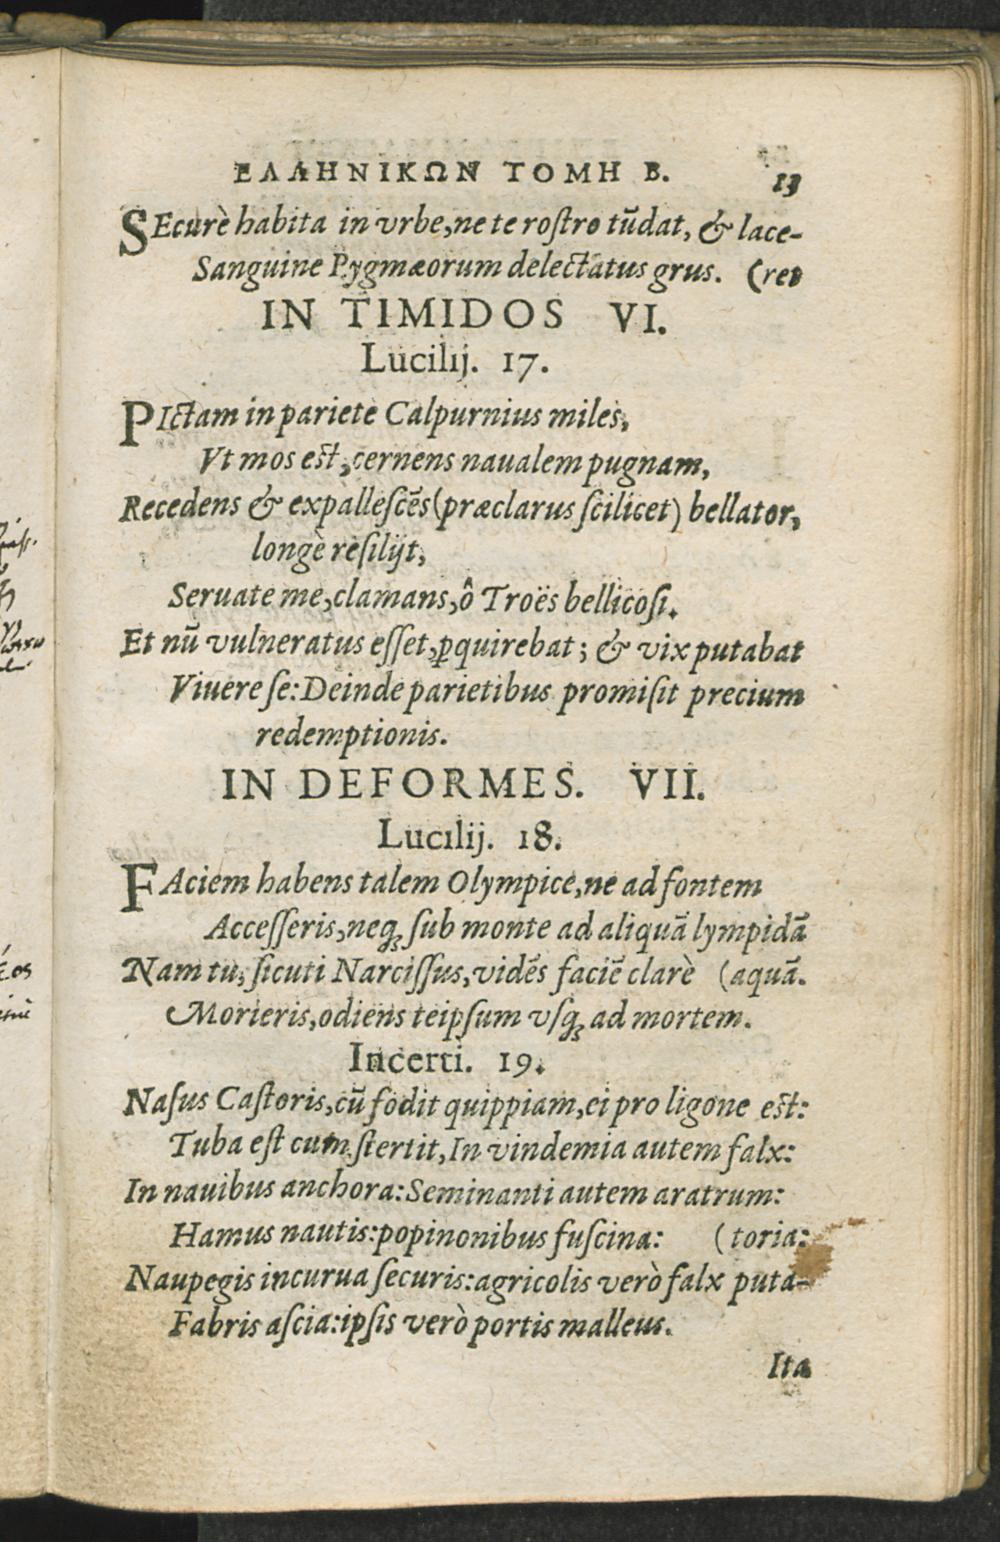 ΕΛΛΗΝΙΚΩΝ ΤΟΜΗ Β. 13
SEcurè habita in vrbe,ne te roſtro tūdat, & lace-
Sanguine Pygmæorum delectatus grus. (ret
IN TIMIDOS VI.
Lucilij. 17.
PIctam in pariete Calpurnius miles,
Vt mos est,cernens naualem pugnam,
Recedens & expalleſcēs(præclarus ſcilicet) bellator,
longè reſilijt,
Seruate me,clamans,ô Troës bellicoſi.
Et nū vulneratus eſſet,ꝑquirebat; & vix putabat
Viuere ſe:Deinde parietibus promiſit precium
redemptionis.
IN DEFORMES. VII.
Lucilij. 18.
FAciem habens talem Olympice,ne ad fontem
Acceſſeris,neqꝫ ſub monte ad aliquā lympidā
Nam tu,ſicuti Narciſſus,vidēs faciē clarè (aquā.
Morieris,odiens teipſum vſqꝫ ad mortem.
Incerti. 19.
Naſus Caſtoris,cū fodit quippiam,ei pro ligone est:
Tuba eſt cum ſtertit,In vindemia autem falx:
In nauibus anchora:Seminanti autem aratrum:
Hamus nautis:popinonibus fuſcina: (toria:
Naupegis incurua ſecuris:agricolis verò falx puta-
Fabris aſcia:ipſis verò portis malleus.
Ita